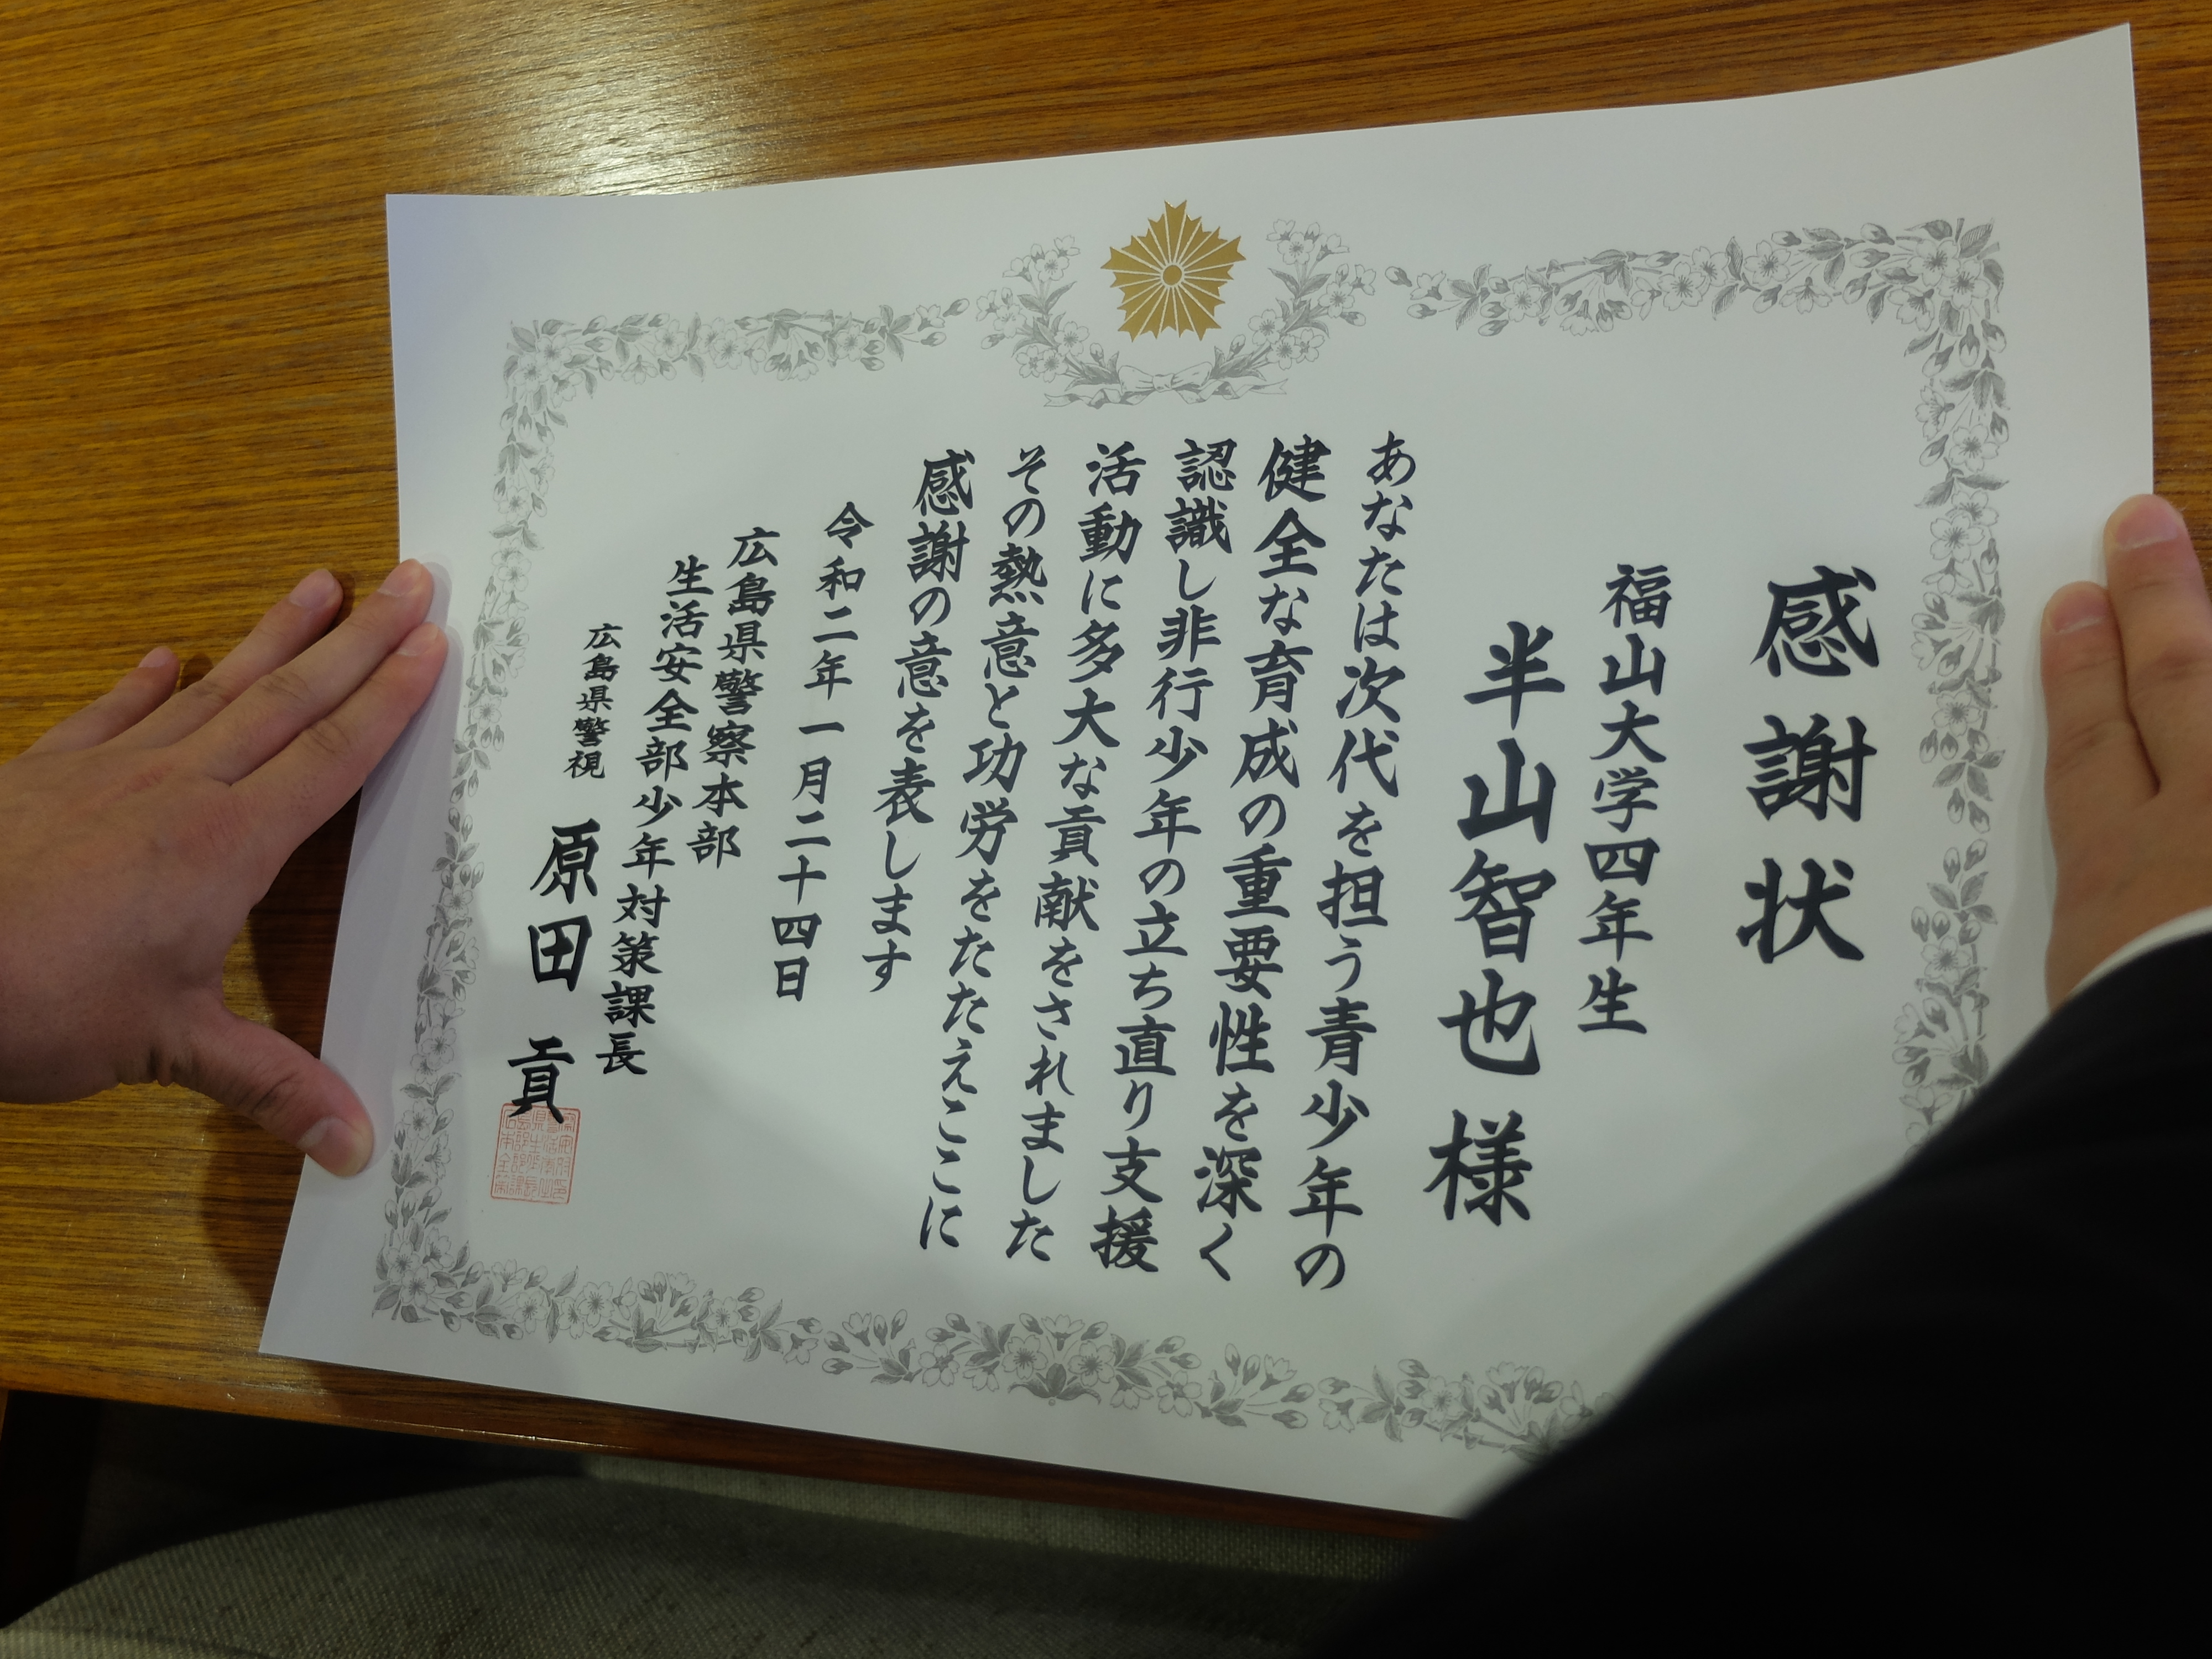 感謝状
福山大学四年生
半山智也様
あなたは次代を担う青少年の
健全な育成の重要性を深く
認識し非行少年の立ち直り支援
活動に多大な貢献をされました
その熱意と功労をたたえここに
感謝の意を表します
令和二年一月二十四日
広島県警察本部
生活安全部少年対策課長
広島県警視 原田 貢